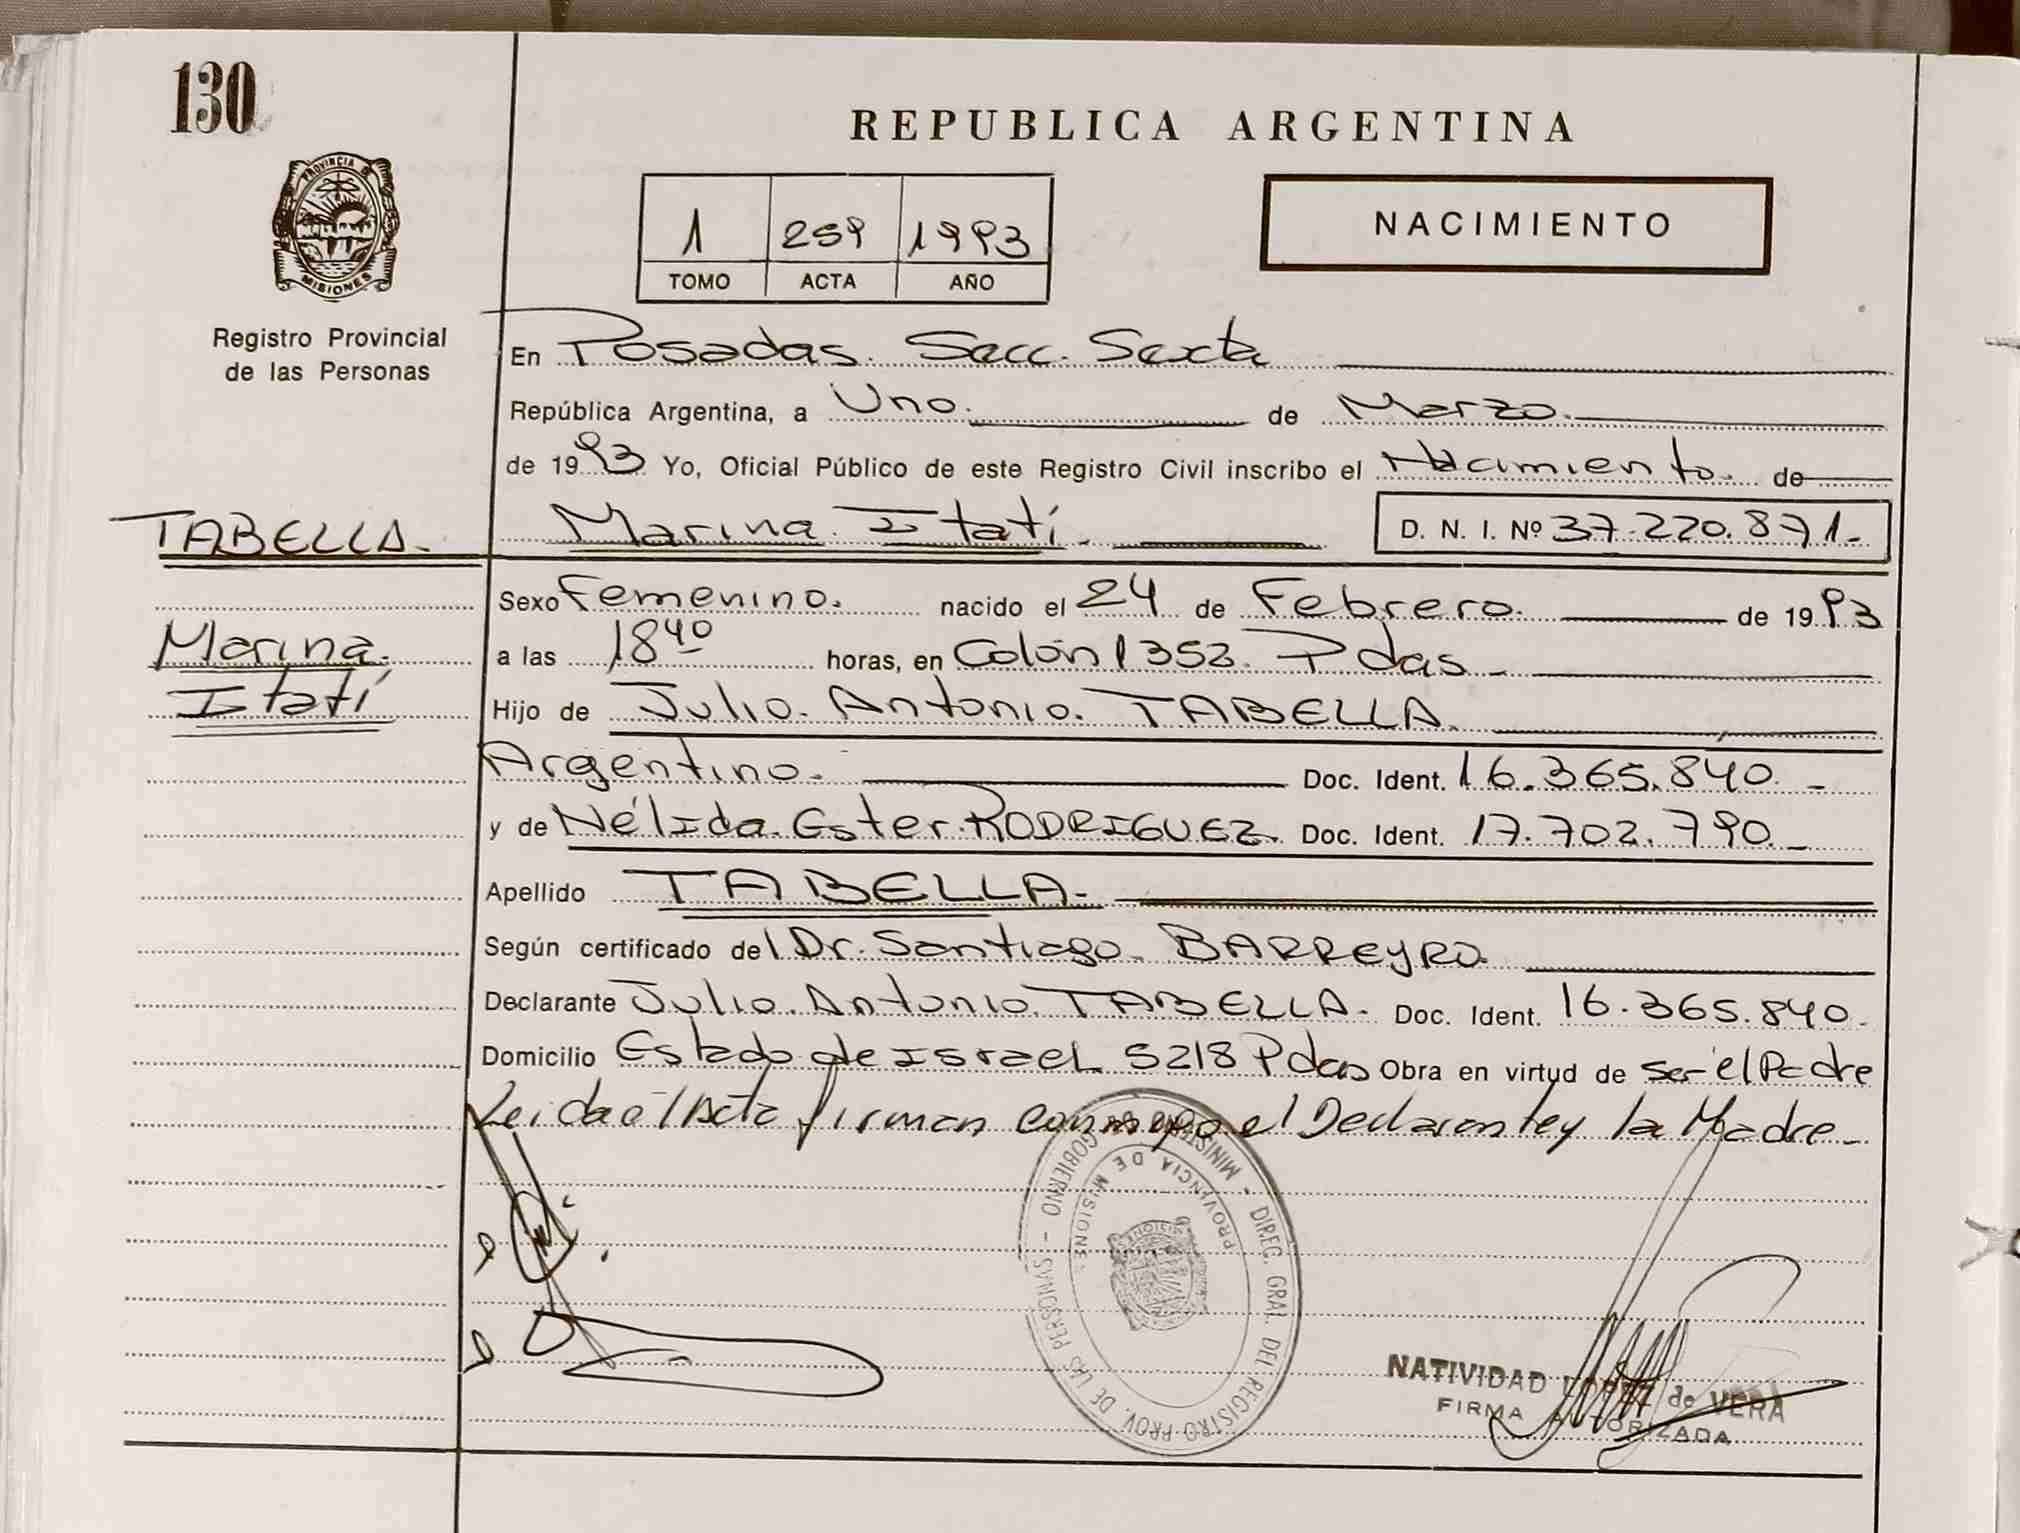 130
REPUBLICA ARGENTINA
PROVINCIA DE
MISIONES
1 259 1993
TOMO ACTA AÑO
NACIMIENTO
Registro Provincial
de las Personas
En Posadas. Secc. Sexta
República Argentina, a Uno. de Marzo.
de 1993 Yo, Oficial Público de este Registro Civil inscribo el Nacimiento. de
TABELLA. Marina Itatí. D. N. I. Nº 37.220.871.-
Sexo Femenino. nacido el 24 de Febrero. de 1993
Marina. a las 18⁴⁰ horas, en Colón 1352. Pdas.
Itatí Hijo de Julio. Antonio. TABELLA.
Argentino. Doc. Ident. 16.365.840.-
y de Nélida. Ester. RODRIGUEZ. Doc. Ident. 17.702.790.-
Apellido TABELLA.-
Según certificado del Dr. Santiago. BARREYRO.
Declarante Julio. Antonio. TABELLA. Doc. Ident. 16.365.840.
Domicilio Estado de Israel 5218 Pdas Obra en virtud de ser el Padre
Leida el Acta firman conmigo el Declarante y la Madre.-
MINISTERIO DE GOBIERNO - DIREC. GRAL. DEL REGISTRO PROV. DE LAS PERSONAS -
PROVINCIA DE MISIONES
NATIVIDAD LOPEZ de VERA
FIRMA AUTORIZADA